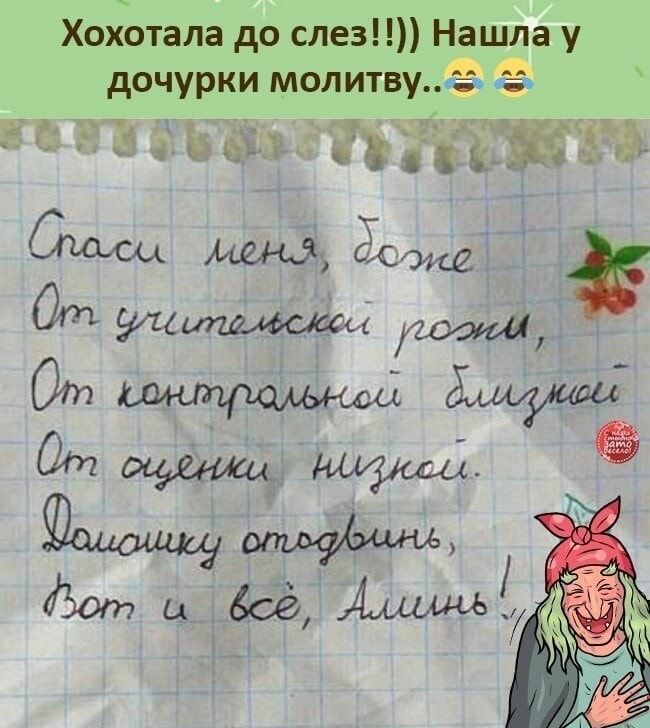 Хохотала до слез!!)) Нашла у
дочурки молитву..😂 😂
Спаси меня, боже
От учительской рожи,
От контрольной близкой
От оценки низкой.
Домашку отодвинь,
Вот и всё, Аминь!
С нами
стыдно
зато
весело!